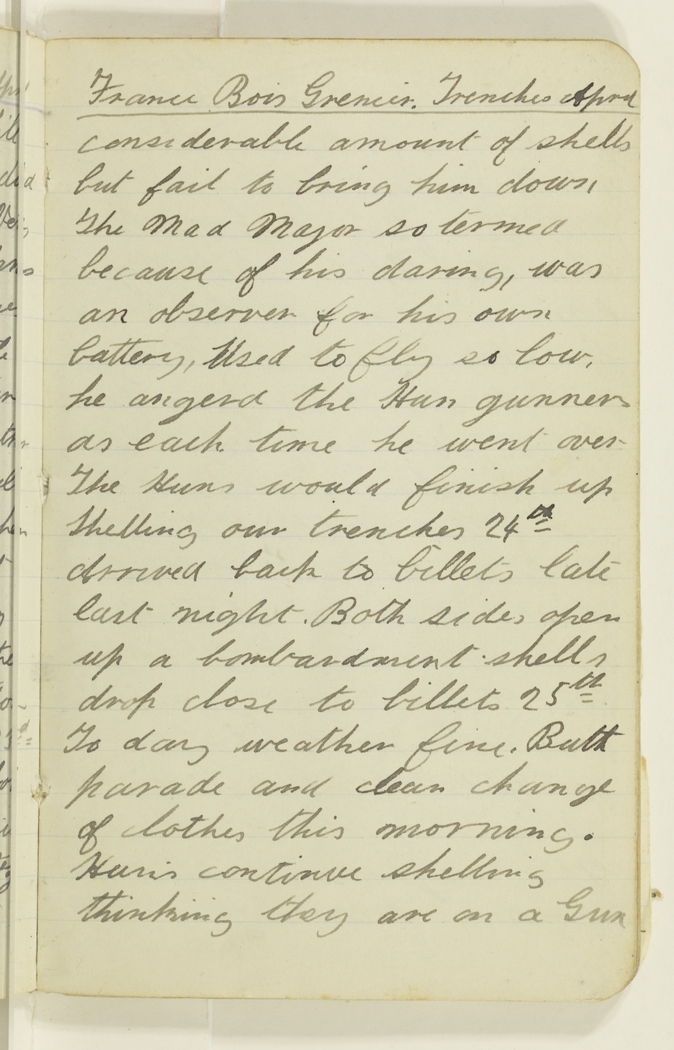 France Bois Grenier. Trenches April
considerable amount of shells
but fail to bring him down
The Mad Major so termed
because of his daring, was
an observer for his own
battery, Used to fly so low,
he angerd the Hun gunners
as each time he went over
The Huns would finish up
Shelling our trenches 24th
arrived back to billets late
last night. Both sides open
up a bombardment shells
drop close to billets 25th
To day weather fine. Bath
parade and clean change
of clothes this morning.
Huns continue shelling
thinking they are on a Gun